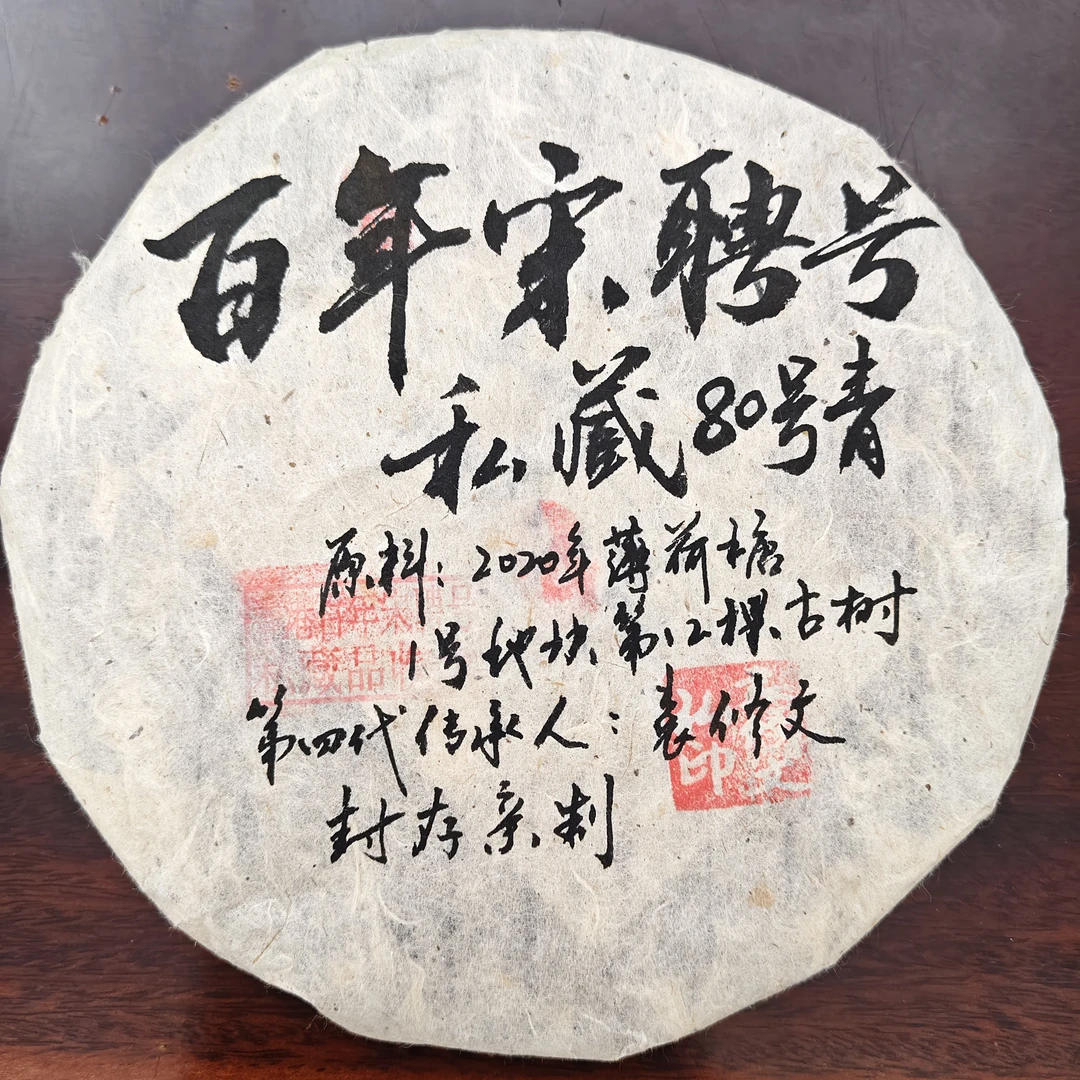 百年宋聘号
私藏80号青
原料：2020年薄荷塘
1号地块第12棵古树
第四代传承人：袁修文
封存亲制
印